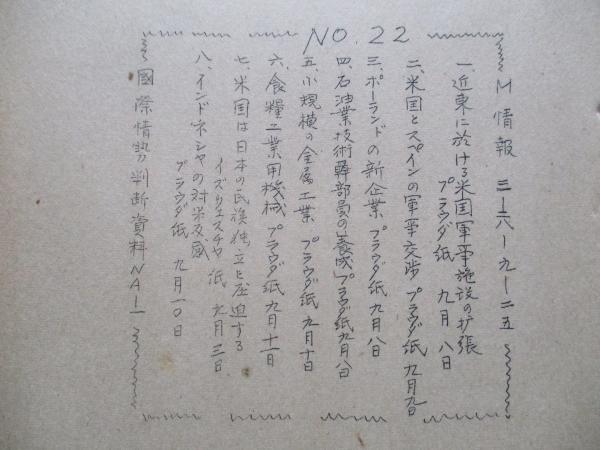 NO.22
M情報 三一六一九一二五
一、近東に於ける米国軍事施設の扩張
プラウダ紙 九月八日
二、米国とスペインの軍事交渉 プラウダ紙 九月九日
三、ポーランドの新企業 プラウダ紙 九月八日
四、石油業技術幹部員の養成 プラウダ紙 九月八日
五、小規模の金属工業 プラウダ紙 九月十日
六、食糧工業用機械 プラウダ紙 九月十一日
七、米国は日本の民族独立を圧迫する
イズヴェスチヤ紙 九月三日
八、インドネシヤの対米反感
プラウダ紙 九月一〇日
國際情勢判断資料NA1